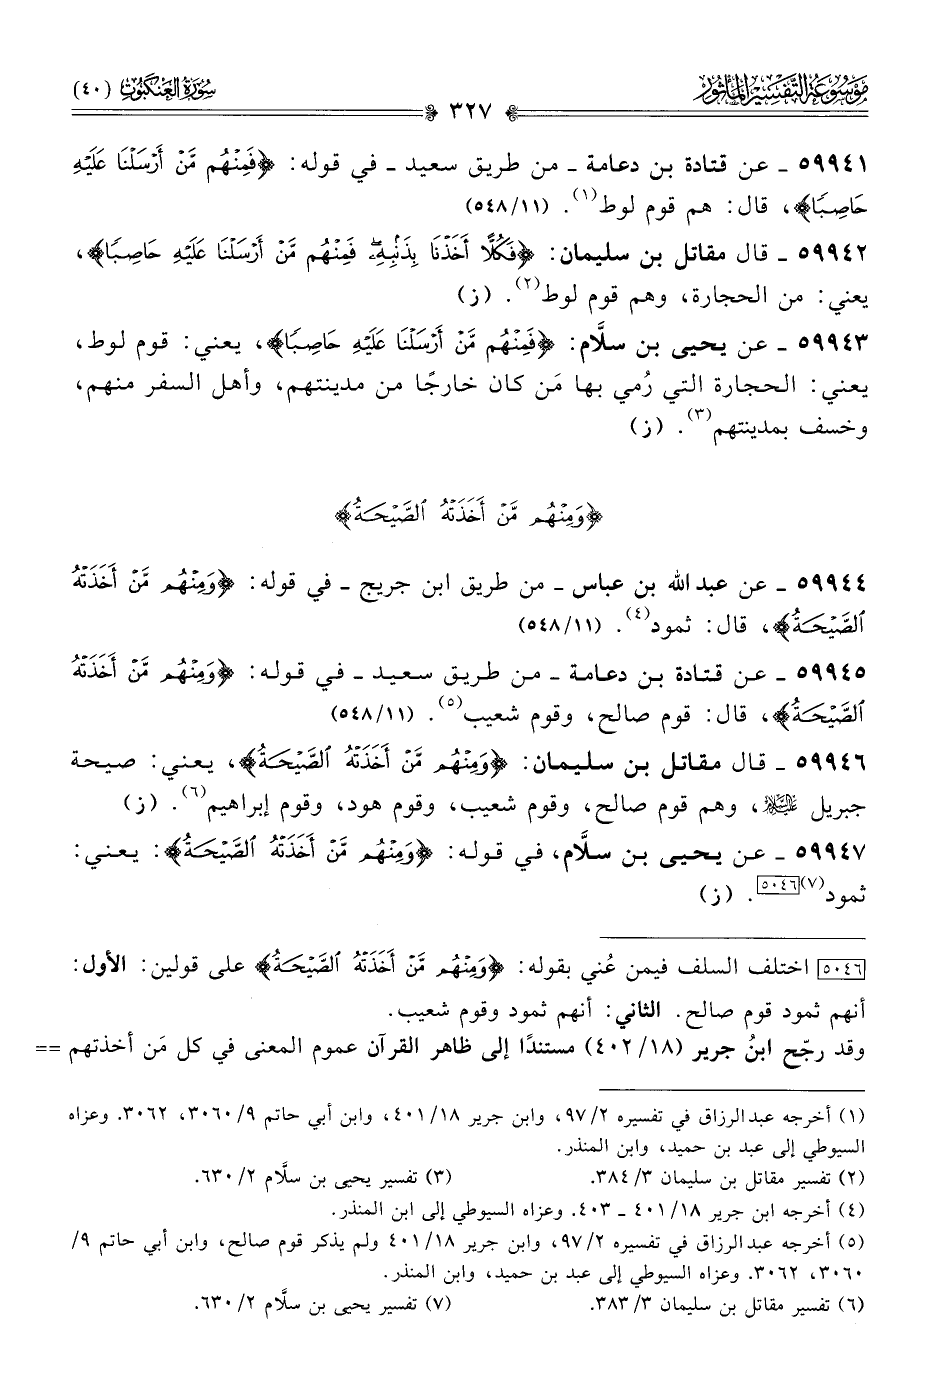 مَوْسُوعَة التَّفْسِيرِ المَأْثُور
٣٢٧
سُورَةُ العَنكَبُوتِ (٤٠)
٥٩٩٤١ ـ عن قتادة بن دعامة ـ من طريق سعيد ـ في قوله: ﴿فَمِنْهُم مَّنْ أَرْسَلْنَا عَلَيْهِ
حَاصِبًا﴾، قال: هم قوم لوط(١). (٥٤٨/١١)
٥٩٩٤٢ ـ قال مقاتل بن سليمان: ﴿فَكُلًّا أَخَذْنَا بِذَنۢبِهِۦۖ فَمِنْهُم مَّنْ أَرْسَلْنَا عَلَيْهِ حَاصِبًا﴾،
يعني: من الحجارة، وهم قوم لوط(٢). (ز)
٥٩٩٤٣ ـ عن يحيى بن سلَّام: ﴿فَمِنْهُم مَّنْ أَرْسَلْنَا عَلَيْهِ حَاصِبًا﴾، يعني: قوم لوط،
يعني: الحجارة التي رُمي بها مَن كان خارجًا من مدينتهم، وأهل السفر منهم،
وخسف بمدينتهم(٣). (ز)
﴿وَمِنْهُم مَّنْ أَخَذَتْهُ ٱلصَّيْحَةُ﴾
٥٩٩٤٤ ـ عن عبد الله بن عباس ـ من طريق ابن جريج ـ في قوله: ﴿وَمِنْهُم مَّنْ أَخَذَتْهُ
ٱلصَّيْحَةُ﴾، قال: ثمود(٤). (٥٤٨/١١)
٥٩٩٤٥ ـ عن قتادة بن دعامة ـ من طريق سعيد ـ في قوله: ﴿وَمِنْهُم مَّنْ أَخَذَتْهُ
ٱلصَّيْحَةُ﴾، قال: قوم صالح، وقوم شعيب(٥). (٥٤٨/١١)
٥٩٩٤٦ ـ قال مقاتل بن سليمان: ﴿وَمِنْهُم مَّنْ أَخَذَتْهُ ٱلصَّيْحَةُ﴾، يعني: صيحة
جبريل عليه السلام، وهم قوم صالح، وقوم شعيب، وقوم هود، وقوم إبراهيم(٦). (ز)
٥٩٩٤٧ ـ عن يحيى بن سلَّام، في قوله: ﴿وَمِنْهُم مَّنْ أَخَذَتْهُ ٱلصَّيْحَةُ﴾: يعني:
ثمود(٧)[٥٠٤٦]. (ز)
[٥٠٤٦] اختلف السلف فيمن عُني بقوله: ﴿وَمِنْهُم مَّنْ أَخَذَتْهُ ٱلصَّيْحَةُ﴾ على قولين: الأول:
أنهم ثمود قوم صالح. الثاني: أنهم ثمود وقوم شعيب.
وقد رجّح ابنُ جرير (٤٠٢/١٨) مستندًا إلى ظاهر القرآن عموم المعنى في كل مَن أخذتهم ==
(١) أخرجه عبد الرزاق في تفسيره ٩٧/٢، وابن جرير ٤٠١/١٨، وابن أبي حاتم ٣٠٦٠/٩، ٣٠٦٢. وعزاه
السيوطي إلى عبد بن حميد، وابن المنذر.
(٢) تفسير مقاتل بن سليمان ٣٨٤/٣. (٣) تفسير يحيى بن سلَّام ٦٣٠/٢.
(٤) أخرجه ابن جرير ٤٠١/١٨ ـ ٤٠٣. وعزاه السيوطي إلى ابن المنذر.
(٥) أخرجه عبد الرزاق في تفسيره ٩٧/٢، وابن جرير ٤٠١/١٨ ولم يذكر قوم صالح، وابن أبي حاتم ٩/
٣٠٦٠، ٣٠٦٢. وعزاه السيوطي إلى عبد بن حميد، وابن المنذر.
(٦) تفسير مقاتل بن سليمان ٣٨٣/٣. (٧) تفسير يحيى بن سلَّام ٦٣٠/٢.